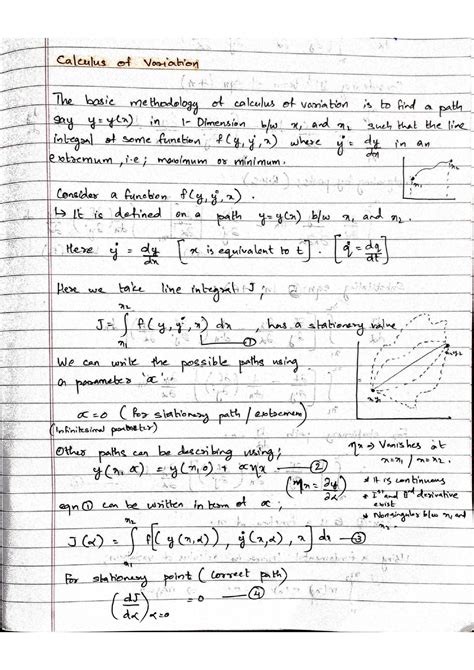 Calculus of Variation
The basic methodology of calculus of variation is to find a path
say y=y(x) in 1-Dimension b/w x₁ and x₂ such that the line
integral of some function f(y,ẏ,x) where ẏ = dy/dx in an
extremum, i.e; maximum or minimum.
Consider a function f(y,ẏ,x).
↳ It is defined on a path y=y(x) b/w x₁ and x₂.
Here ẏ = dy/dx [x is equivalent to t]. [q̇ = dq/dt]
Here we take line integral J;
J = ∫_{x₁}^{x₂} f(y,ẏ,x) dx, has a stationary value
①
We can write the possible paths using
a parameter 'α'.
α=0 (for stationary path / extremem)
(Infinitesimal parameter)
Other paths can be describing using;
y(x,α) = y(x,0) + αηx — ②
(ηx = ∂y/∂α)
ηx → Vanishes at
x=x₁ / x=x₂.
* It is continuous
* Iˢᵗ and IIⁿᵈ derivative
exist
* Nonsingular b/w x₁ and
x₂.
eqn ① can be written in term of α;
J(α) = ∫_{x₁}^{x₂} f[(y(x,α), ẏ(x,α), x] dx — ③
For stationary point (correct path)
(dJ/dα)_{α=0} = 0 — ④